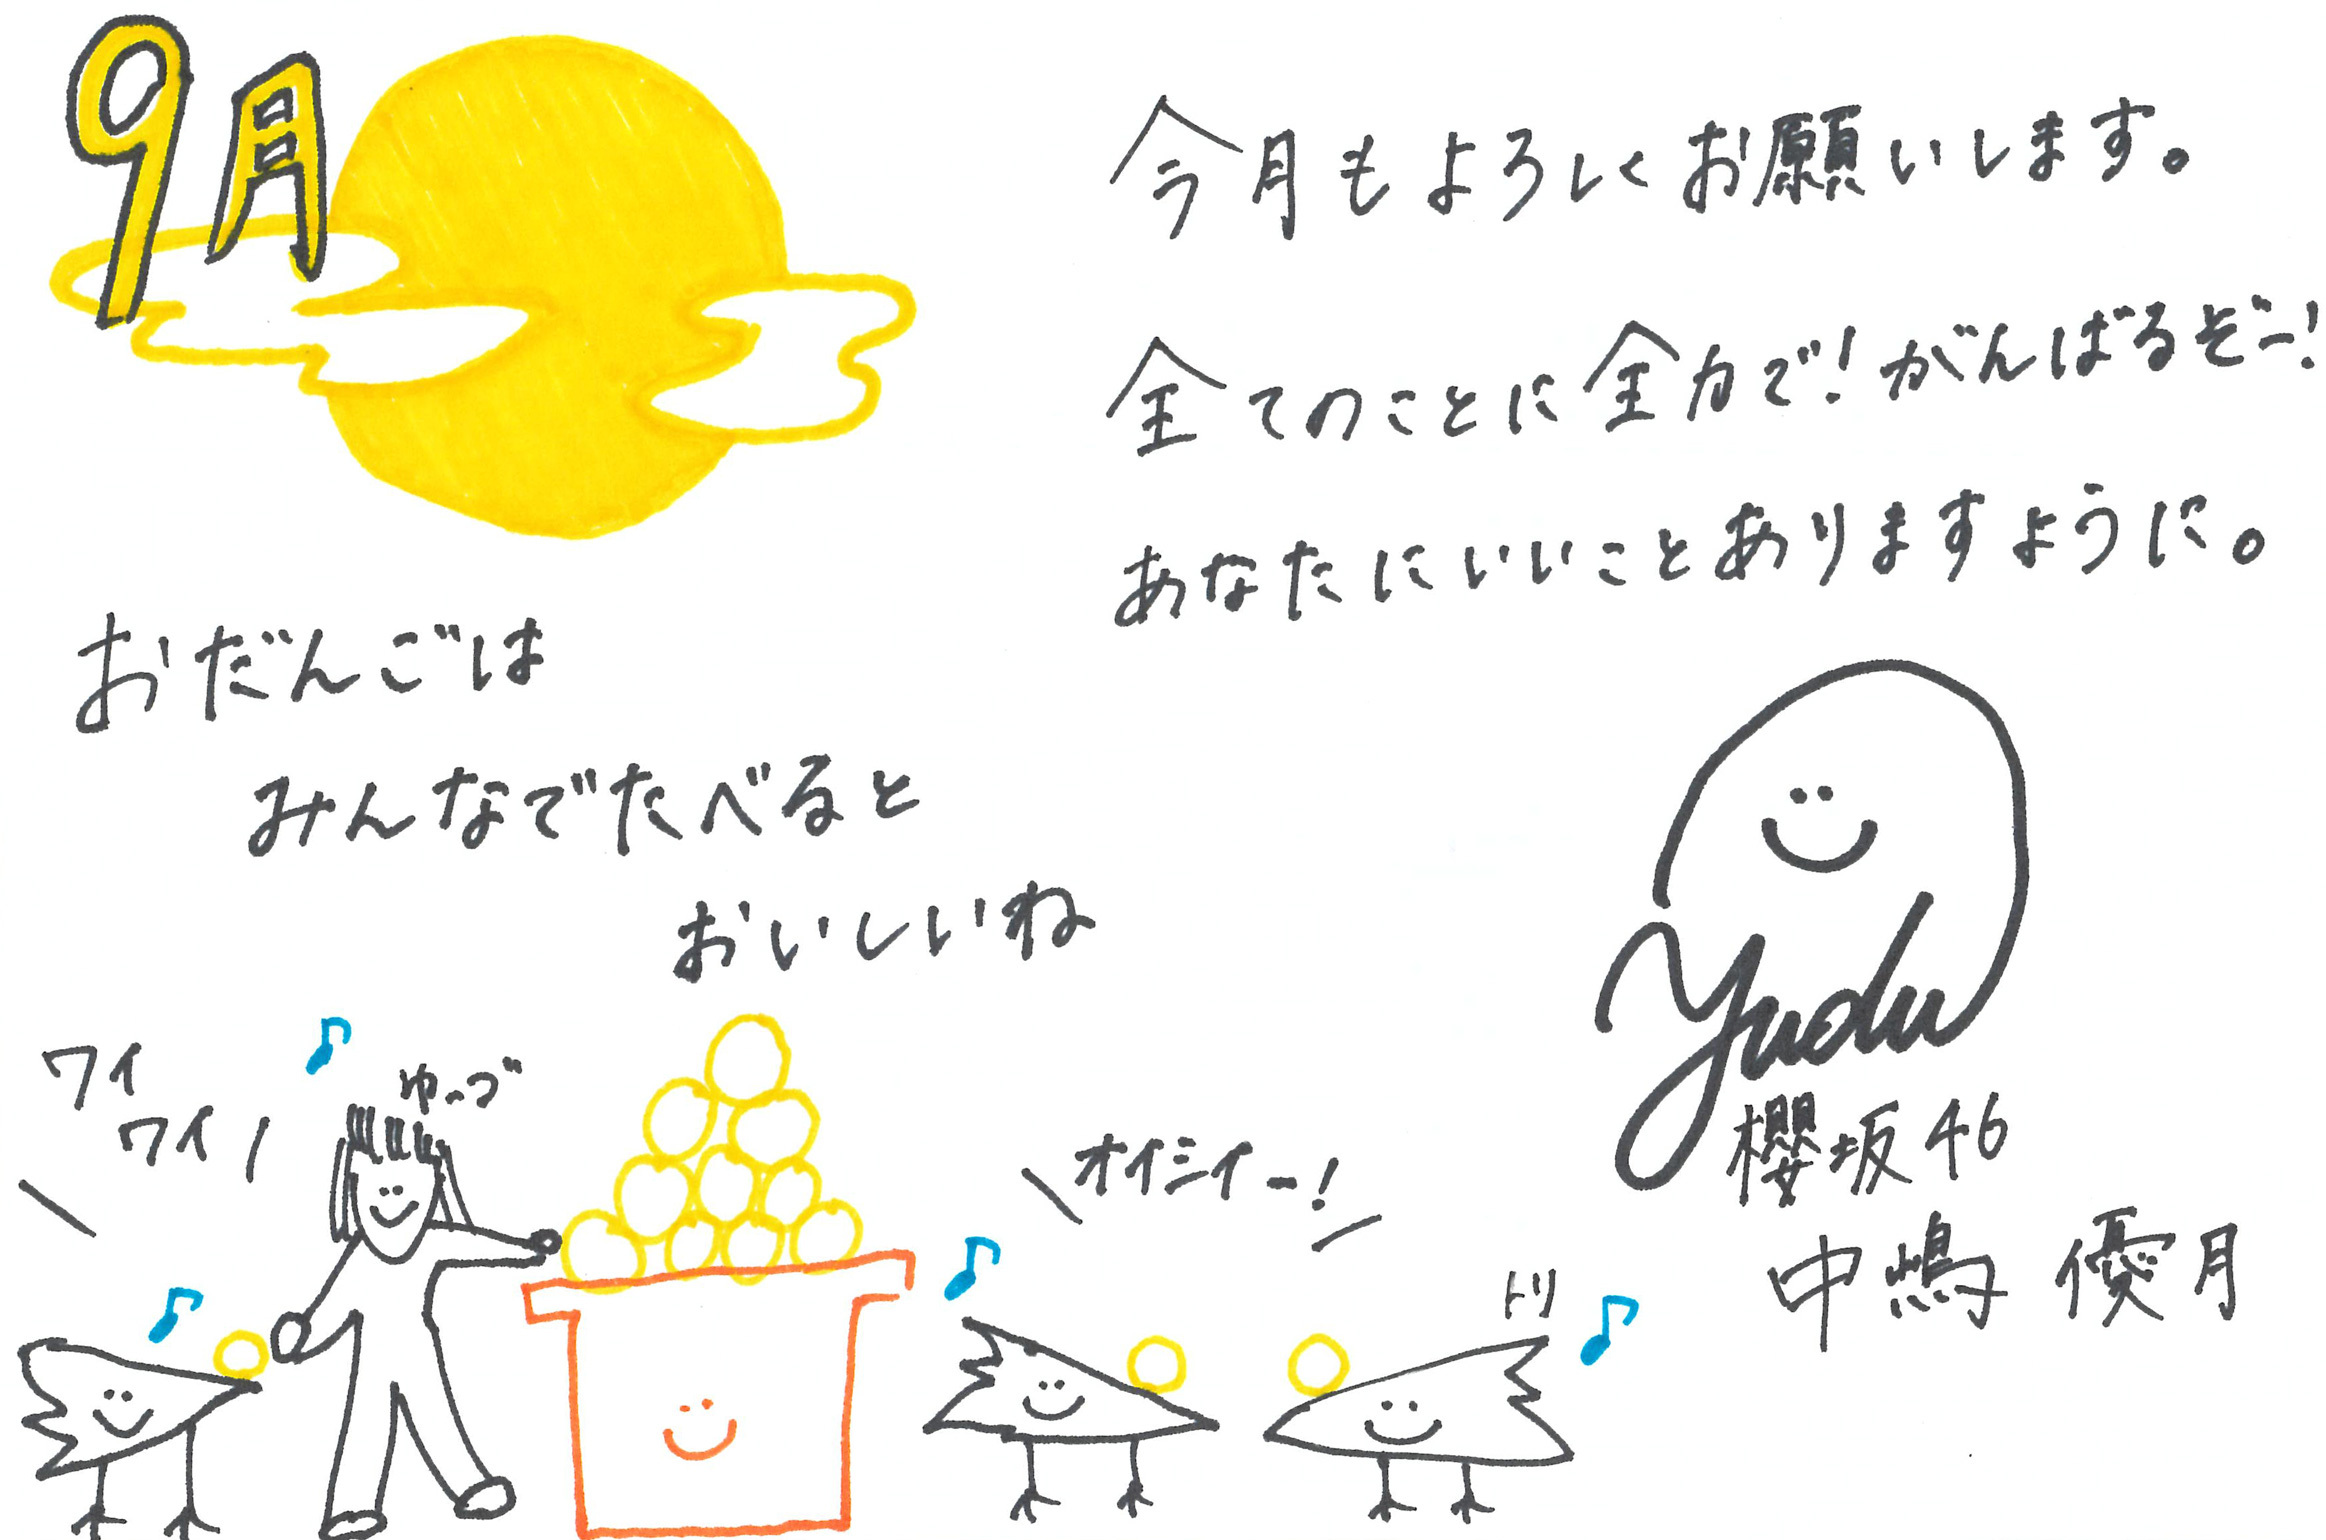 9月
今月もよろしくお願いします。
全てのことに全力で！がんばるぞー！
あなたにいいことありますように。
おだんごは
みんなでたべると
おいしいね
ワイ
ワイ
ゆーづ
オイシイー！
トリ
yudu
櫻坂46
中嶋 優月